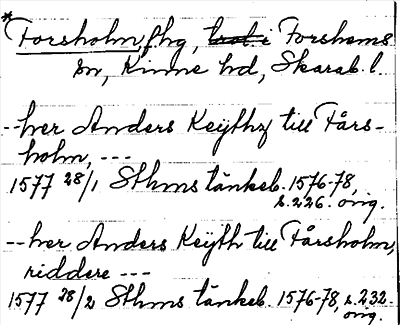 *Forsholm fhg, trol. i Forshems
sn, Kinne hd, Skarab. l.
--her Anders Keÿthz till Fårs-
holm, ---
1577 28/1 Sthms tänkeb. 1576-78,
s. 226. orig.
--her Anders Keÿth till Fårsholm,
riddere ---
1577 28/2 Sthms tänkeb. 1576-78, s. 232.
orig.